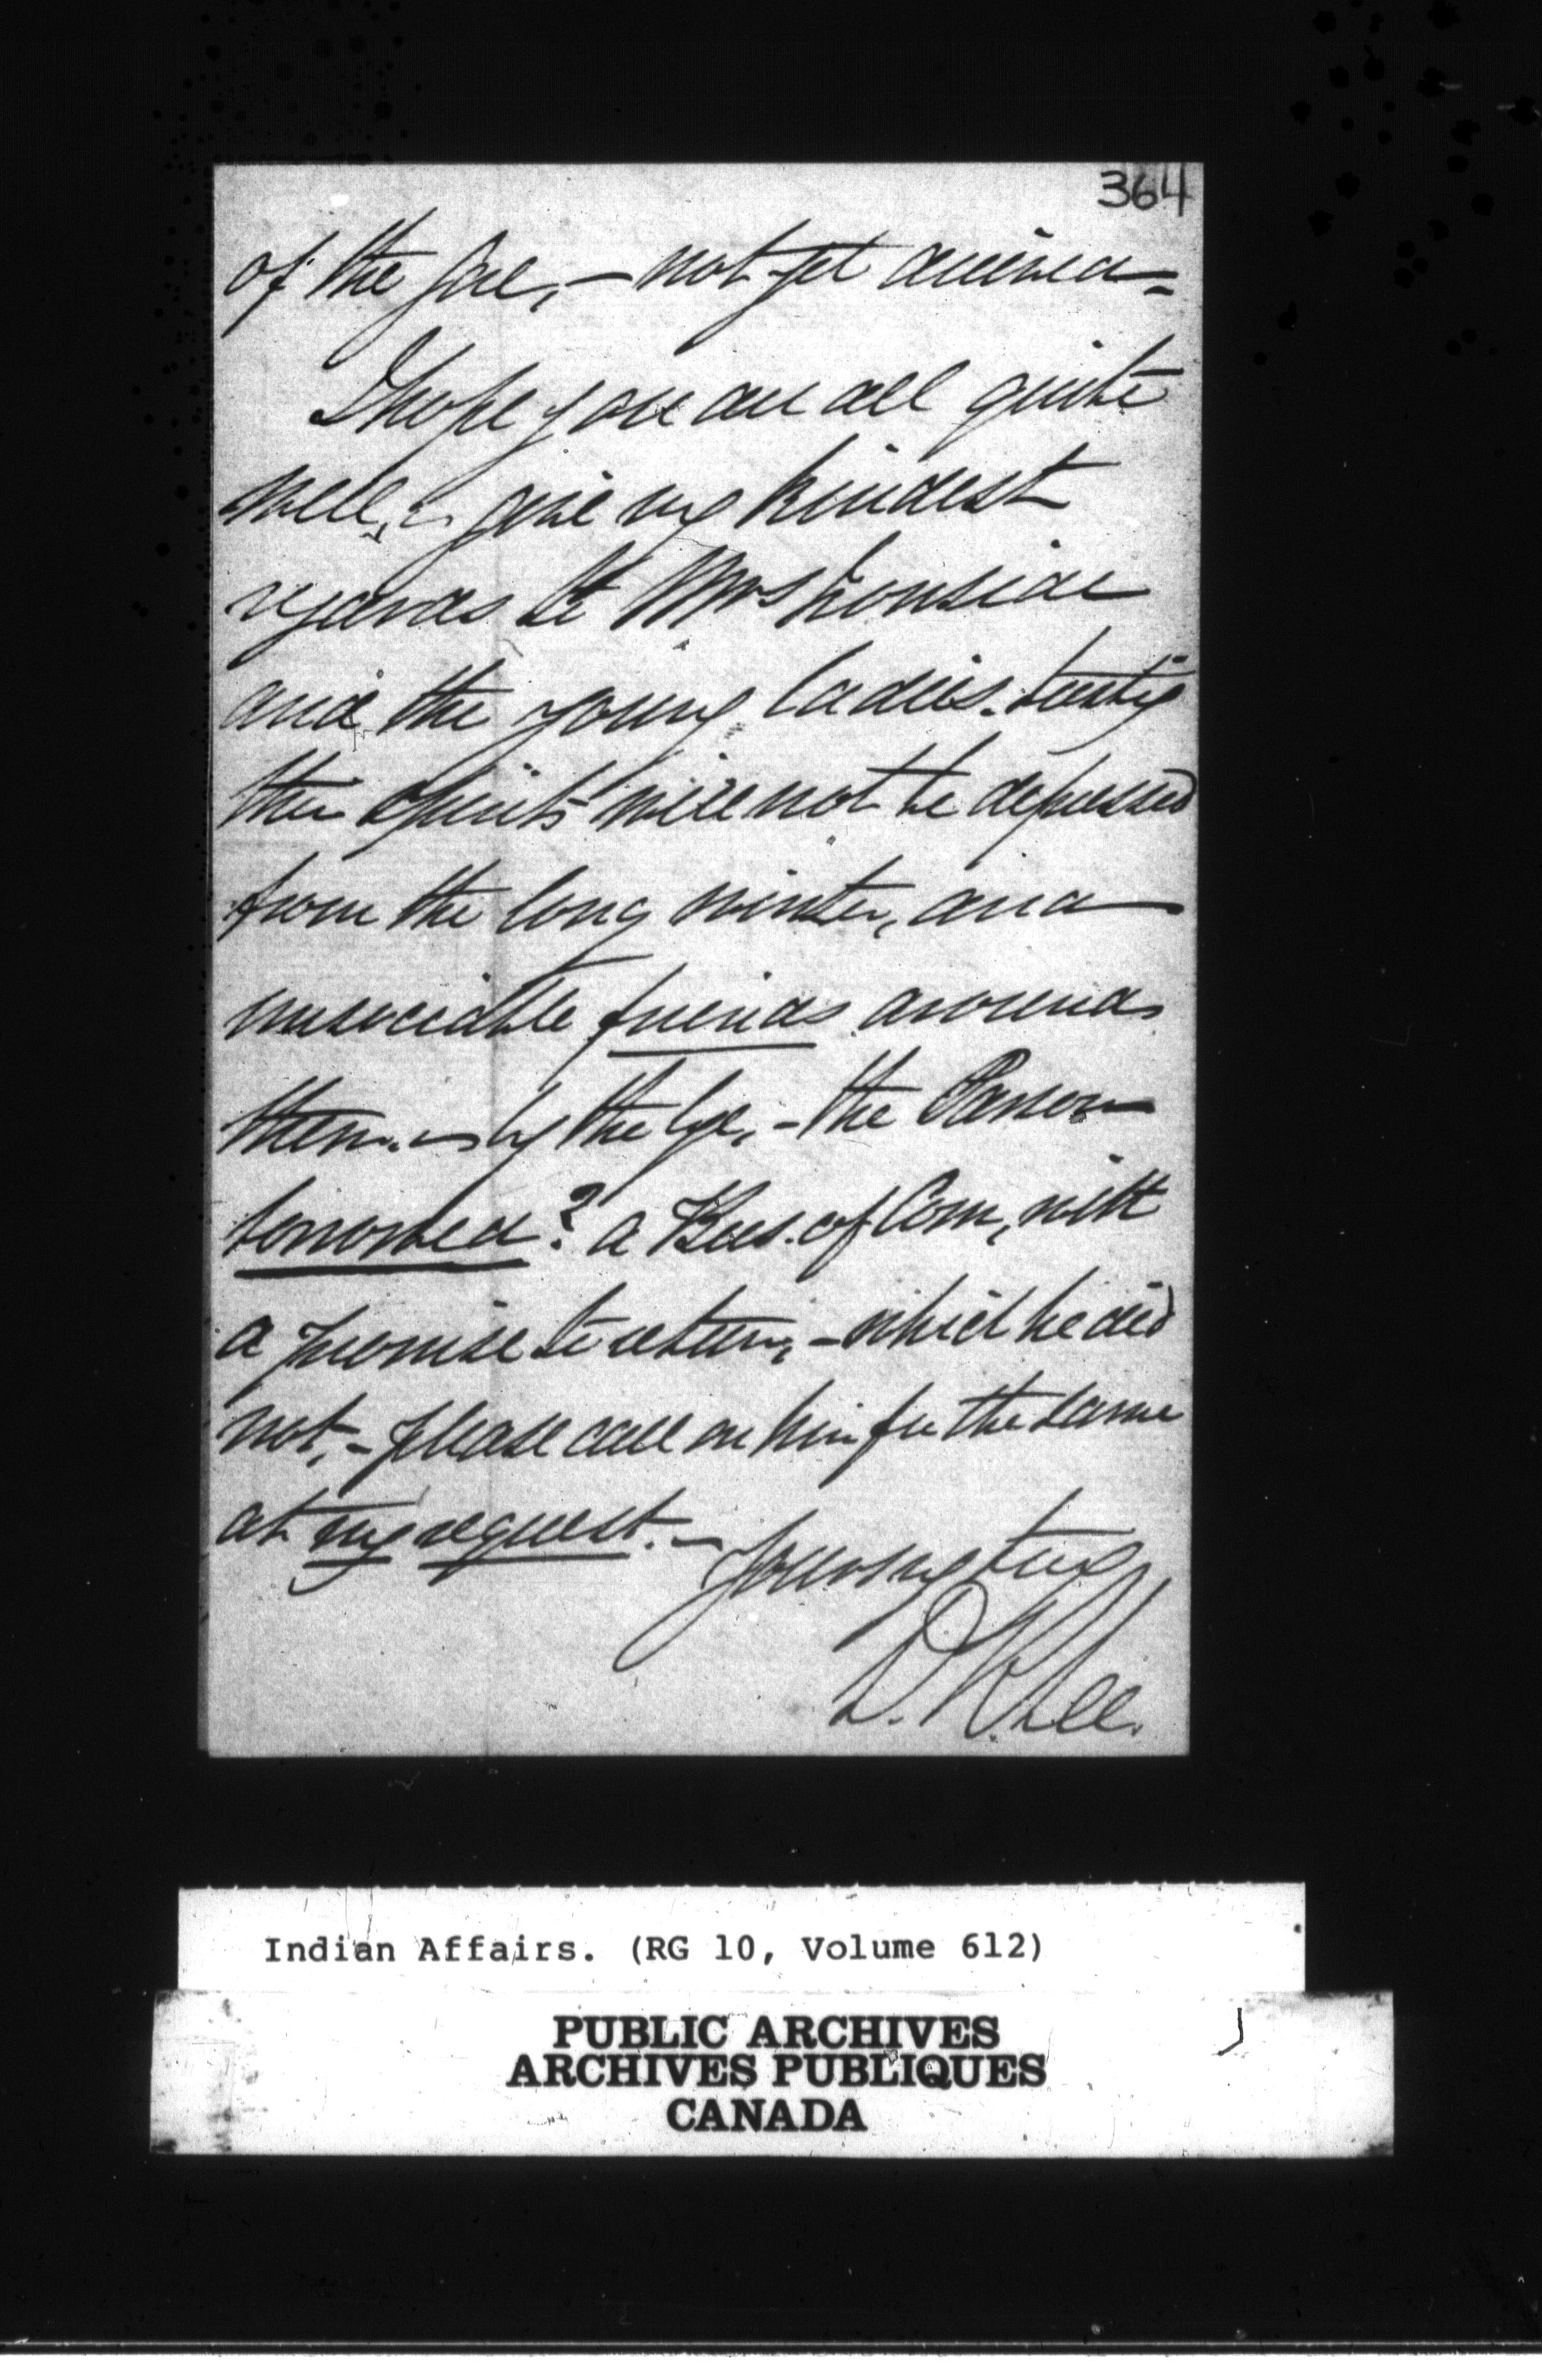 364
of the        , – not yet arrived =
I hope you are all quite
well, & give my kindest
regards to Mrs Ironside
and the young ladies.
their spirits will not be depressed
from the long winter, and
unsociable friends around
them. – by the bye, – the Parson
borrowed? a Box. of Com, with
a promise to return, – which he did
not, – please call on him for the same
at my request. –
Yours very truly
D.
Indian Affairs. (RG 10, Volume 612)
PUBLIC ARCHIVES
ARCHIVES PUBLIQUES
CANADA